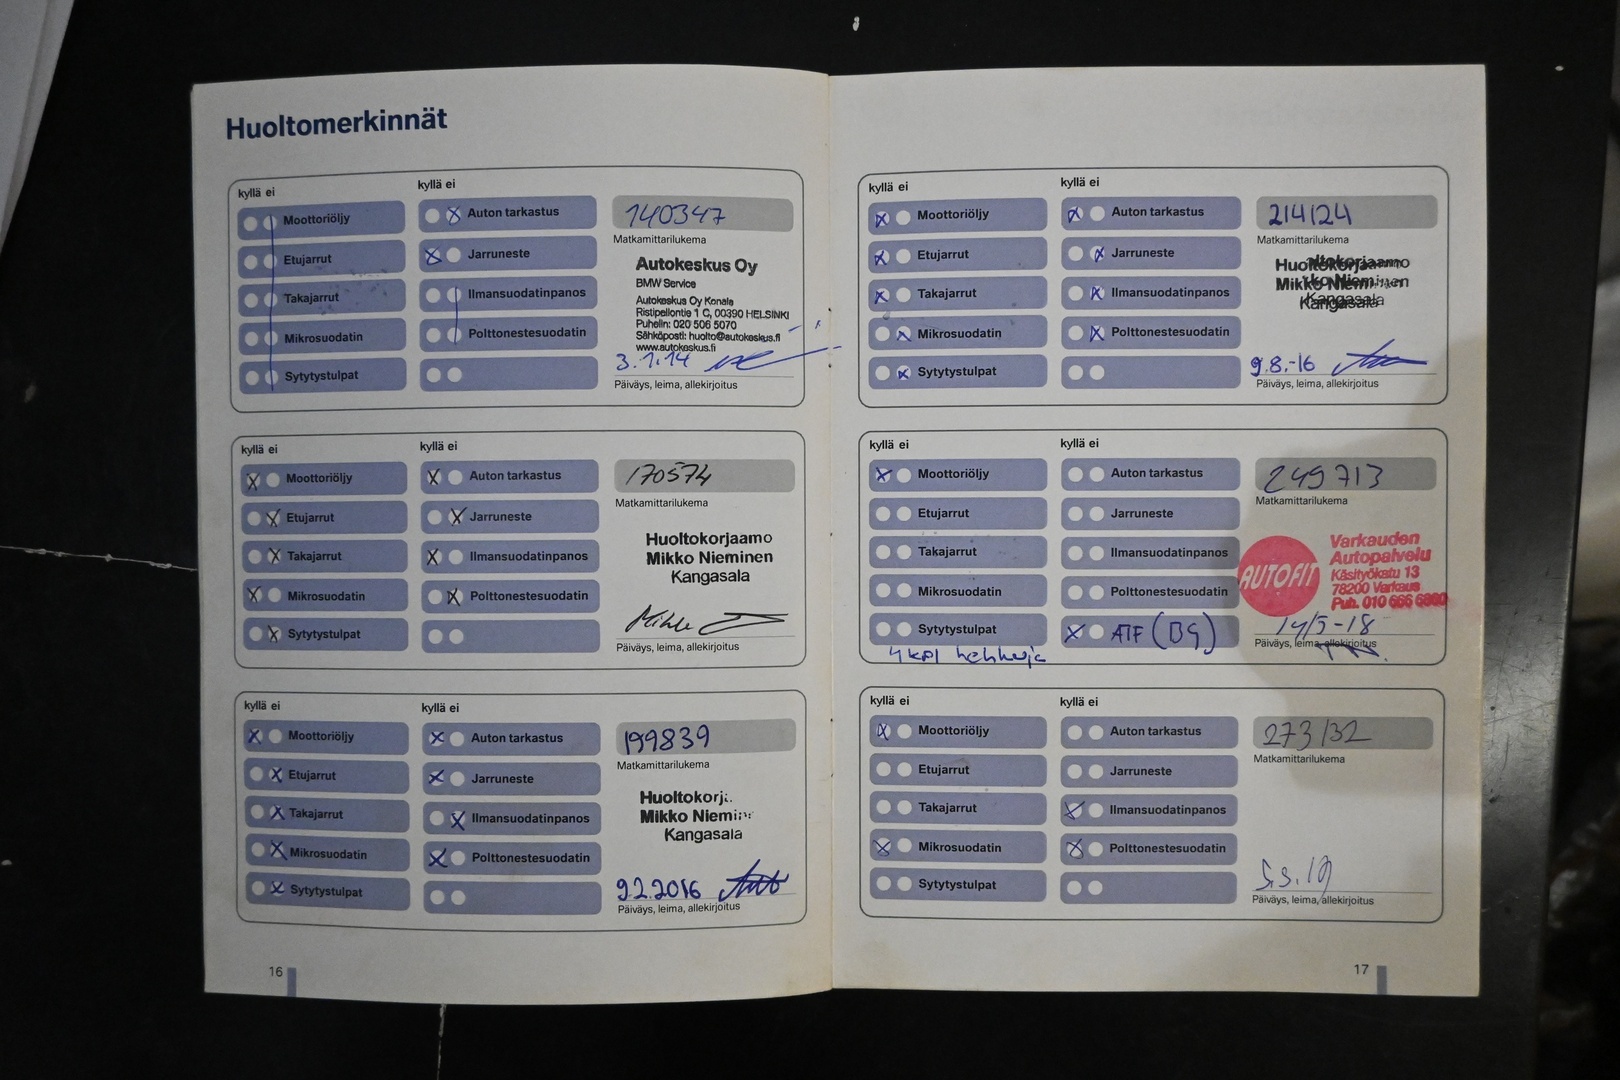 Huoltomerkinnät
kyllä ei
Moottoriöljy
Etujarrut
Takajarrut
Mikrosuodatin
Sytytystulpat
kyllä ei
Auton tarkastus
Jarruneste
Ilmansuodatinpanos
Polttonestesuodatin
140347
Matkamittarilukema
Autokeskus Oy
BMW Service
Autokeskus Oy Konala
Ristipellontie 1 C, 00390 HELSINKI
Puhelin: 020 506 5070
Sähköposti: huolto@autokeskus.fi
www.autokeskus.fi
3.1.14
Päiväys, leima, allekirjoitus
kyllä ei
Moottoriöljy
Etujarrut
Takajarrut
Mikrosuodatin
Sytytystulpat
kyllä ei
Auton tarkastus
Jarruneste
Ilmansuodatinpanos
Polttonestesuodatin
170574
Matkamittarilukema
Huoltokorjaamo
Mikko Nieminen
Kangasala
Päiväys, leima, allekirjoitus
kyllä ei
Moottoriöljy
Etujarrut
Takajarrut
Mikrosuodatin
Sytytystulpat
kyllä ei
Auton tarkastus
Jarruneste
Ilmansuodatinpanos
Polttonestesuodatin
199839
Matkamittarilukema
Huoltokorj
Mikko Niemin
Kangasala
9.2.2016
Päiväys, leima, allekirjoitus
16
kyllä ei
Moottoriöljy
Etujarrut
Takajarrut
Mikrosuodatin
Sytytystulpat
kyllä ei
Auton tarkastus
Jarruneste
Ilmansuodatinpanos
Polttonestesuodatin
214124
Matkamittarilukema
Huoltokorjaamo
Mikko Nieminen
Kangasala
9.8.-16
Päiväys, leima, allekirjoitus
kyllä ei
Moottoriöljy
Etujarrut
Takajarrut
Mikrosuodatin
Sytytystulpat
4 kpl hehkuja
kyllä ei
Auton tarkastus
Jarruneste
Ilmansuodatinpanos
Polttonestesuodatin
ATF (BG)
249713
Matkamittarilukema
AUTOFIT
Varkauden
Autopalvelu
Käsityökatu 13
78200 Varkaus
Puh. 010 666 6860
14/5-18
Päiväys, leima, allekirjoitus
kyllä ei
Moottoriöljy
Etujarrut
Takajarrut
Mikrosuodatin
Sytytystulpat
kyllä ei
Auton tarkastus
Jarruneste
Ilmansuodatinpanos
Polttonestesuodatin
273132
Matkamittarilukema
5.3.19
Päiväys, leima, allekirjoitus
17